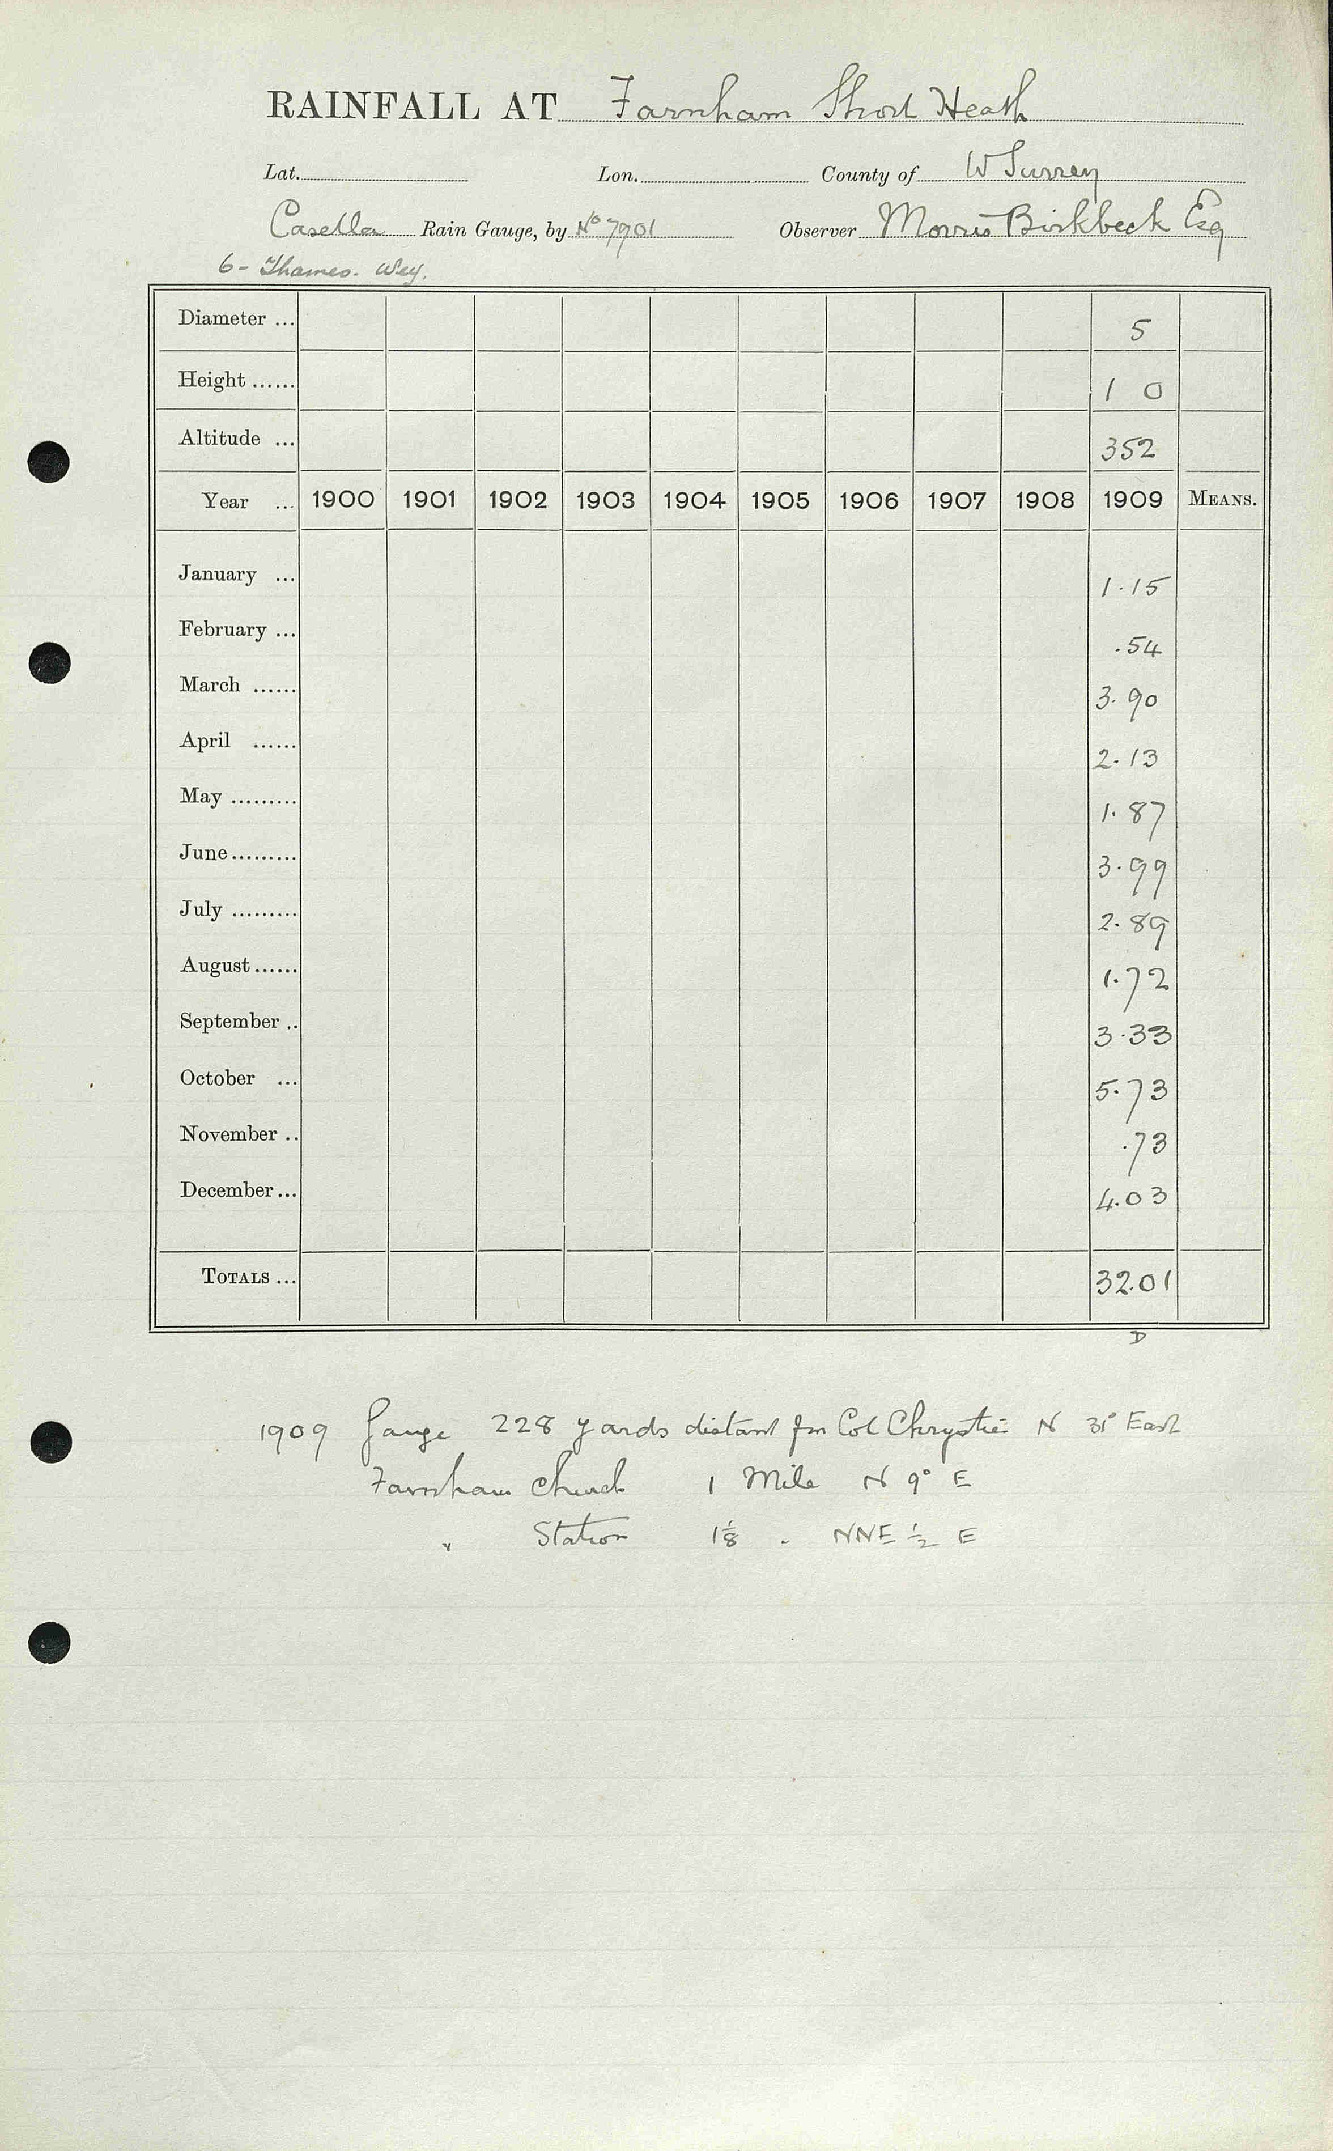 RAINFALL AT Farnham Short Heath
Lat. Lon. County of W Surrey
Casella Rain Gauge, by No 7901 Observer Morris Birkbeck Esq
6 - Thames. Wey.
Diameter ... 5
Height ...... 1 0
Altitude ... 352
Year ... 1900 1901 1902 1903 1904 1905 1906 1907 1908 1909 MEANS.
January ... 1.15
February ... .54
March ...... 3.90
April ...... 2.13
May ......... 1.87
June ......... 3.99
July ......... 2.89
August ...... 1.72
September .. 3.33
October ... 5.73
November .. .73
December ... 4.03
TOTALS ... 32.01
D
1909 Gauge 228 yards distant fm Col Chrystie N 31° East
Farnham Church 1 Mile N 9° E
" Station 1 1/8 " NNE 1/2 E